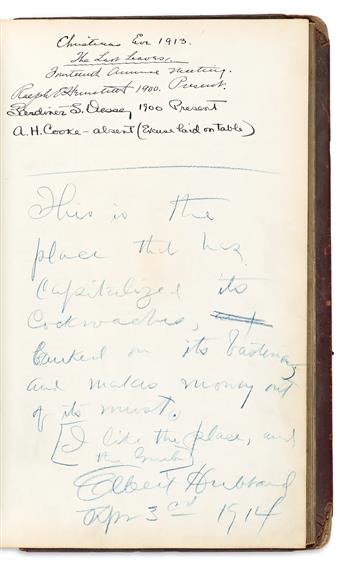 Christmas Eve 1913.
The Last Leaves.
Fourteenth Annual Meeting.
Ralph 1900. Present.
Gardiner S. 1900 Present
A. H. Cooke – absent (Excuse laid on table)
This is the
place that has
Capitalized its
Cockroaches,
banked on its
and makes money out
of its must.
[I like the place, and
the
Elbert Hubbard
Apr 3rd 1914